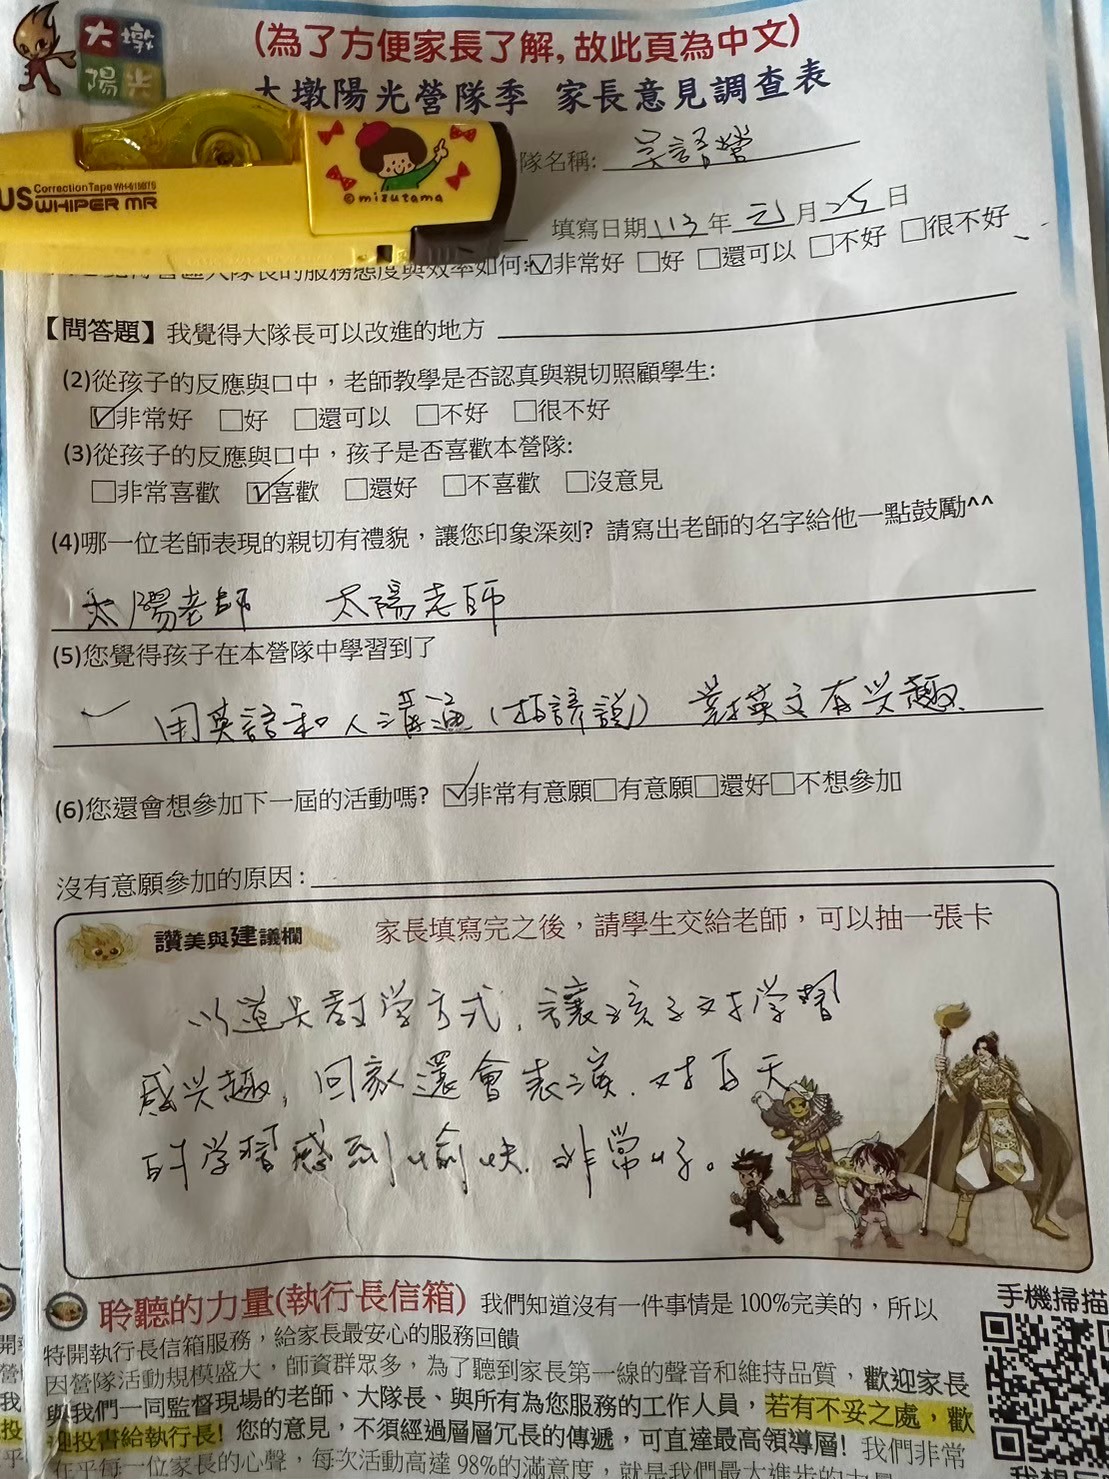 大墩
陽光
(為了方便家長了解,故此頁為中文)
大墩陽光營隊季 家長意見調查表
隊名稱: 英語營
US CorrectionTape WH-615BTS
WHIPER MR
©mizutama
填寫日期113年元月25日
大隊長的服務態度與效率如何:☑非常好 □好 □還可以 □不好 □很不好
【問答題】我覺得大隊長可以改進的地方
(2)從孩子的反應與口中,老師教學是否認真與親切照顧學生:
☑非常好 □好 □還可以 □不好 □很不好
(3)從孩子的反應與口中,孩子是否喜歡本營隊:
□非常喜歡 ☑喜歡 □還好 □不喜歡 □沒意見
(4)哪一位老師表現的親切有禮貌,讓您印象深刻? 請寫出老師的名字給他一點鼓勵^^
太陽老師 太陽老師
(5)您覺得孩子在本營隊中學習到了
用英語和人溝通 對英文有兴趣
(6)您還會想參加下一屆的活動嗎? ☑非常有意願□有意願□還好□不想參加
沒有意願參加的原因:
讚美與建議欄 家長填寫完之後,請學生交給老師,可以抽一張卡
以道具教学方式,讓孩子对学習
感兴趣,回家還會表演.对每天
的学習感到愉快.非常好。
聆聽的力量(執行長信箱) 我們知道沒有一件事情是100%完美的,所以
手機掃描
特開執行長信箱服務,給家長最安心的服務回饋
因營隊活動規模盛大,師資群眾多,為了聽到家長第一線的聲音和維持品質,歡迎家長
與我們一同監督現場的老師、大隊長、與所有為您服務的工作人員,若有不妥之處,歡
迎投書給執行長! 您的意見,不須經過層層冗長的傳遞,可直達最高領導層! 我們非常
在乎每一位家長的心聲,每次活動高達98%的滿意度,就是我們最大進步的力量